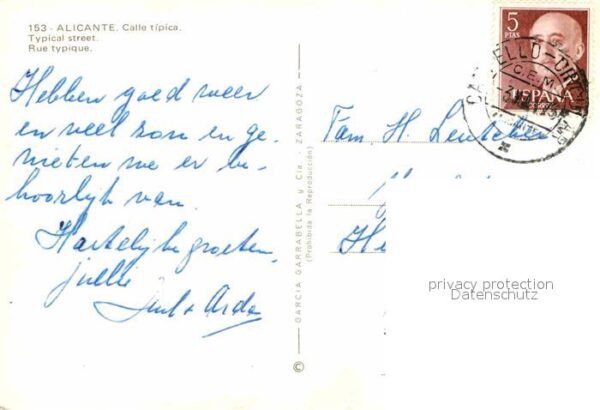 153 - ALICANTE. Calle típica.
Typical street.
Rue typique.
Hebben goed weer
en veel zon en ge-
nieten we er be-
hoorlijk van.
Hartelijke groeten,
jullie
Arda
GARCIA GARRABELLA y Cía. - ZARAGOZA
(Prohibida la Reproducción)
©
5
PTAS
ESPAÑA
CORREOS
C.E.M.
Fam. H.
He
privacy protection
Datenschutz